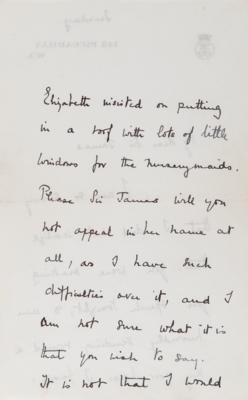 Elizabeth insisted on putting
in a roof with lots of little
windows for the nurserymaids.
Please Sir James will you
not appeal in her name at
all, as I have such
difficulties over it, and I
am not sure what it is
that you wish to say.
It is not that I would